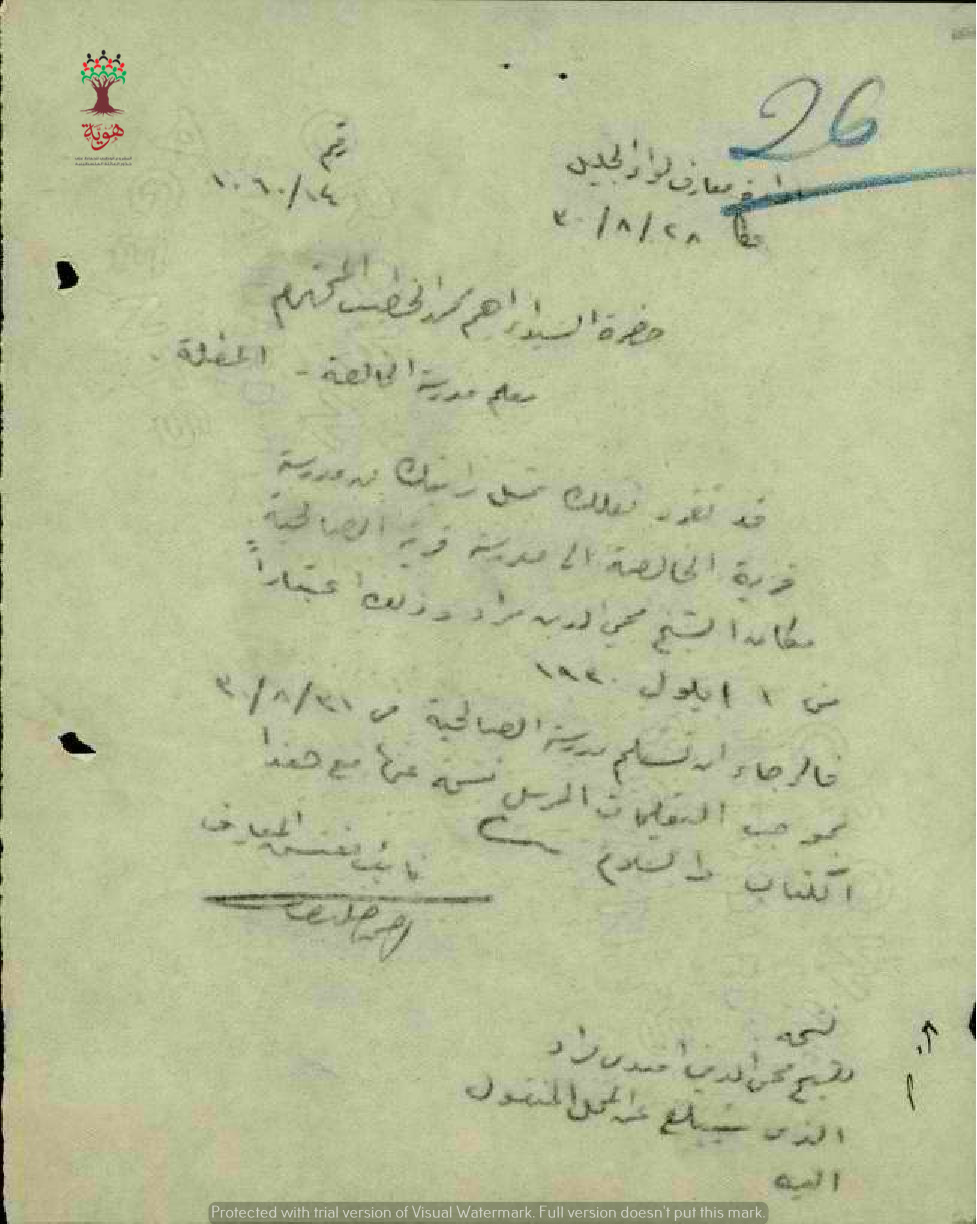 26
هوية
رقم
١٠٦٠/١٤
معارف لواء الجليل
عكا ٢٨/٨/٣٠
حضرة السيد ابراهيم محمد الخطيب المحترم
معلم مدرسة الخالصة - المفضلة .
قد تقرر نقلك بمثل راتبك من مدرسة
قرية الخالصة الى مدرسة قرية الصالحية
مكان الشيخ محي الدين مراد وذلك اعتباراً
من ١ ايلول ١٩٣٠
فالرجاء ان تستلم مدرسة الصالحية في ٣١/٨/٣٠
بموجب التعليمات المرسل نسخة عنها مع هذا
الكتاب والسلام
نائب مفتش المعارف
نسخه
للشيخ محي الدين افندي مراد
الذي سيبلغ عن المحل المنقول
اليه
Protected with trial version of Visual Watermark. Full version doesn't put this mark.